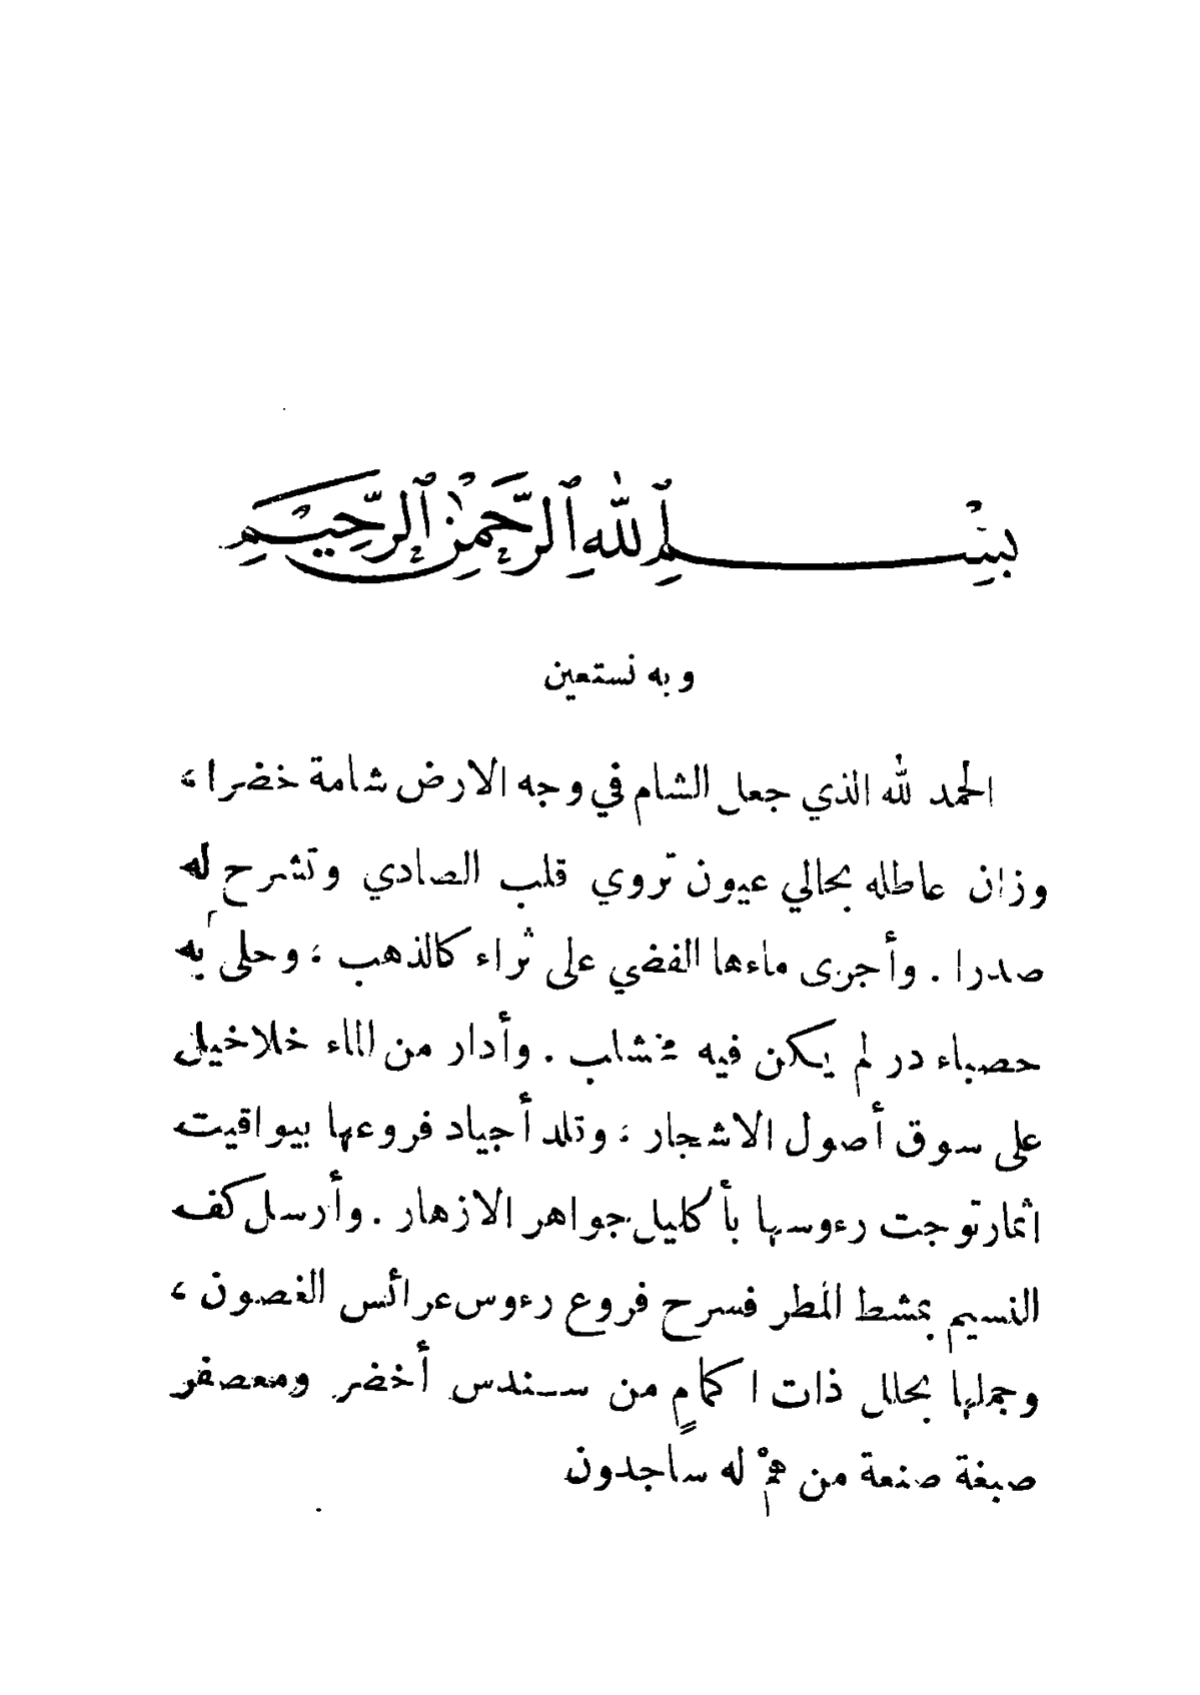 بِسْمِ ٱللّٰهِ ٱلرَّحْمٰنِ ٱلرَّحِيْمِ
وبه نستعين
الحمد لله الذي جعل الشام في وجه الارض شامة خضرا ،
وزان عاطله بحالي عيون تروي قلب الصادي وتشرح له
صدرا . وأجرى ماءها الفضي على ثراء كالذهب ، وحلى به
حصباء در لم يكن فيه مخشلب . وأدار من الماء خلاخيل
على سوق أصول الاشجار ، وقلد أجياد فروعها بيواقيت
اثمار توجت رءوسها بأكليل جواهر الازهار . وأرسل كف
النسيم بمشط المطر فسرح فروع رءوس عرائس الغصون ،
وجملها بحلل ذات اكمامٍ من سندس أخضر ومعصفر
صبغة صنعة من همْ له ساجدون